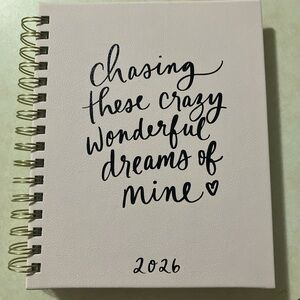 chasing
these crazy
wonderful
dreams of
mine ♡
2026